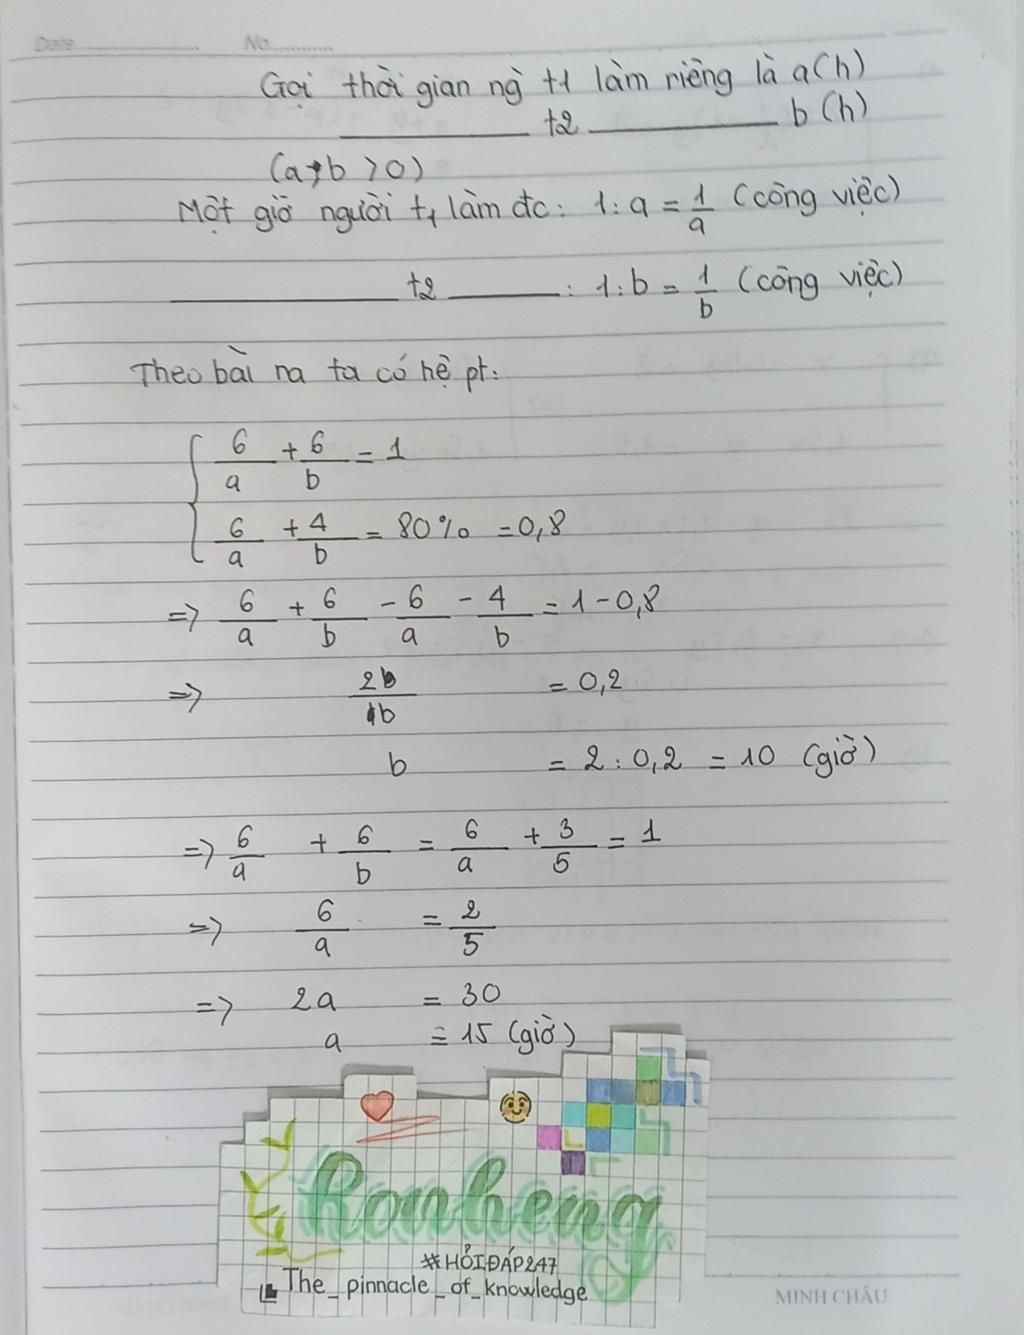 Date No
Gọi thời gian ng` t1 làm riêng là a(h)
____ t2 ____ b (h)
(a;b >0)
Một giờ người t1 làm đc: 1:a = 1/a (công việc)
____ t2 ____ : 1:b = 1/b (công việc)
Theo bài ra ta có hệ pt:
{ 6/a + 6/b = 1
6/a + 4/b = 80% = 0,8
=> 6/a + 6/b - 6/a - 4/b = 1 - 0,8
=> 2/b = 0,2
b = 2 : 0,2 = 10 (giờ)
=> 6/a + 6/b = 6/a + 3/5 = 1
=> 6/a = 2/5
=> 2a = 30
a = 15 (giờ)
Ronheng
#HỎIĐÁP247
The_pinnacle_of_knowledge
MINH CHÂU